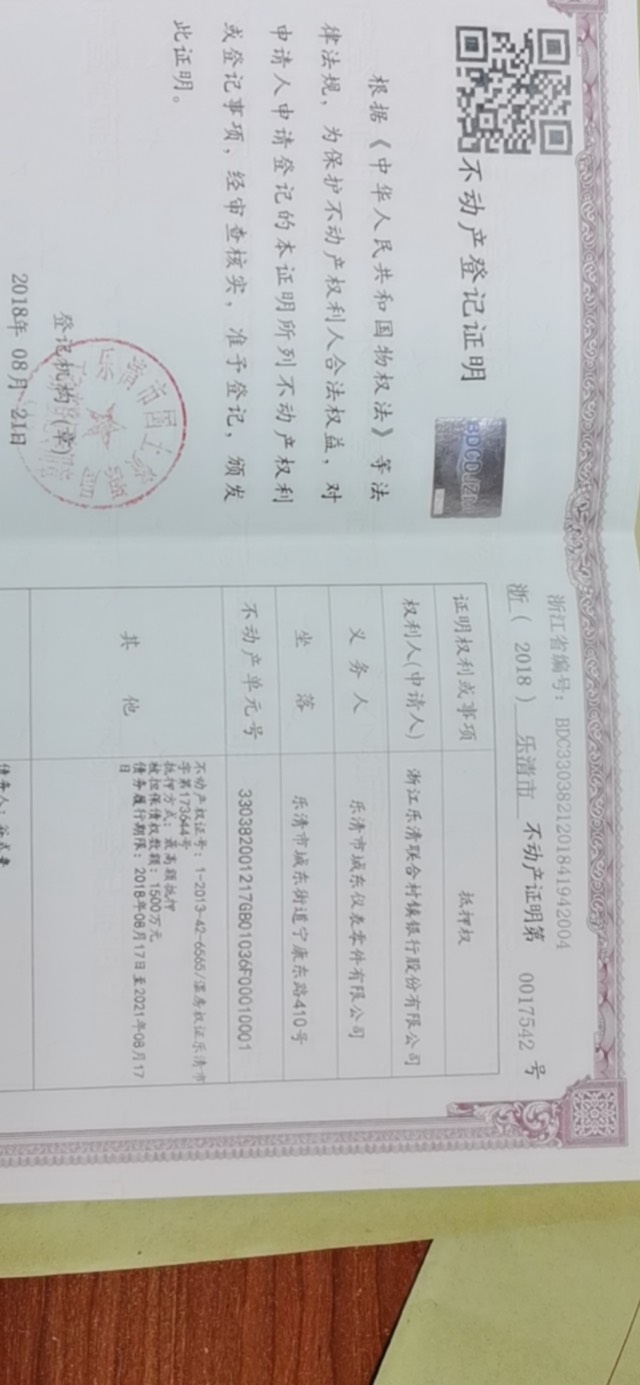 不动产登记证明
根据《中华人民共和国物权法》等法
律法规，为保护不动产权利人合法权益，对
申请人申请登记的本证明所列不动产权利
或登记事项，经审查核实，准予登记，颁发
此证明。
登记机构（章）
2018年 08月 21日
浙江省编号：BDC3303821201841942004
浙（ 2018 ） 乐清市 不动产证明第 0017542 号
证明权利或事项 抵押权
权利人(申请人) 浙江乐清联合村镇银行股份有限公司
义务人 乐清市城东仪表零件有限公司
坐落 乐清市城东街道宁康东路410号
不动产单元号 330382001217GB01036F00010001
其他
不动产权证号：1-2013-42-6565/温房权证乐清市
字第173644号
抵押方式：最高额抵押
被担保债权数额：1500万元
债务履行期限：2018年08月17日至2021年08月17
日
债务人：